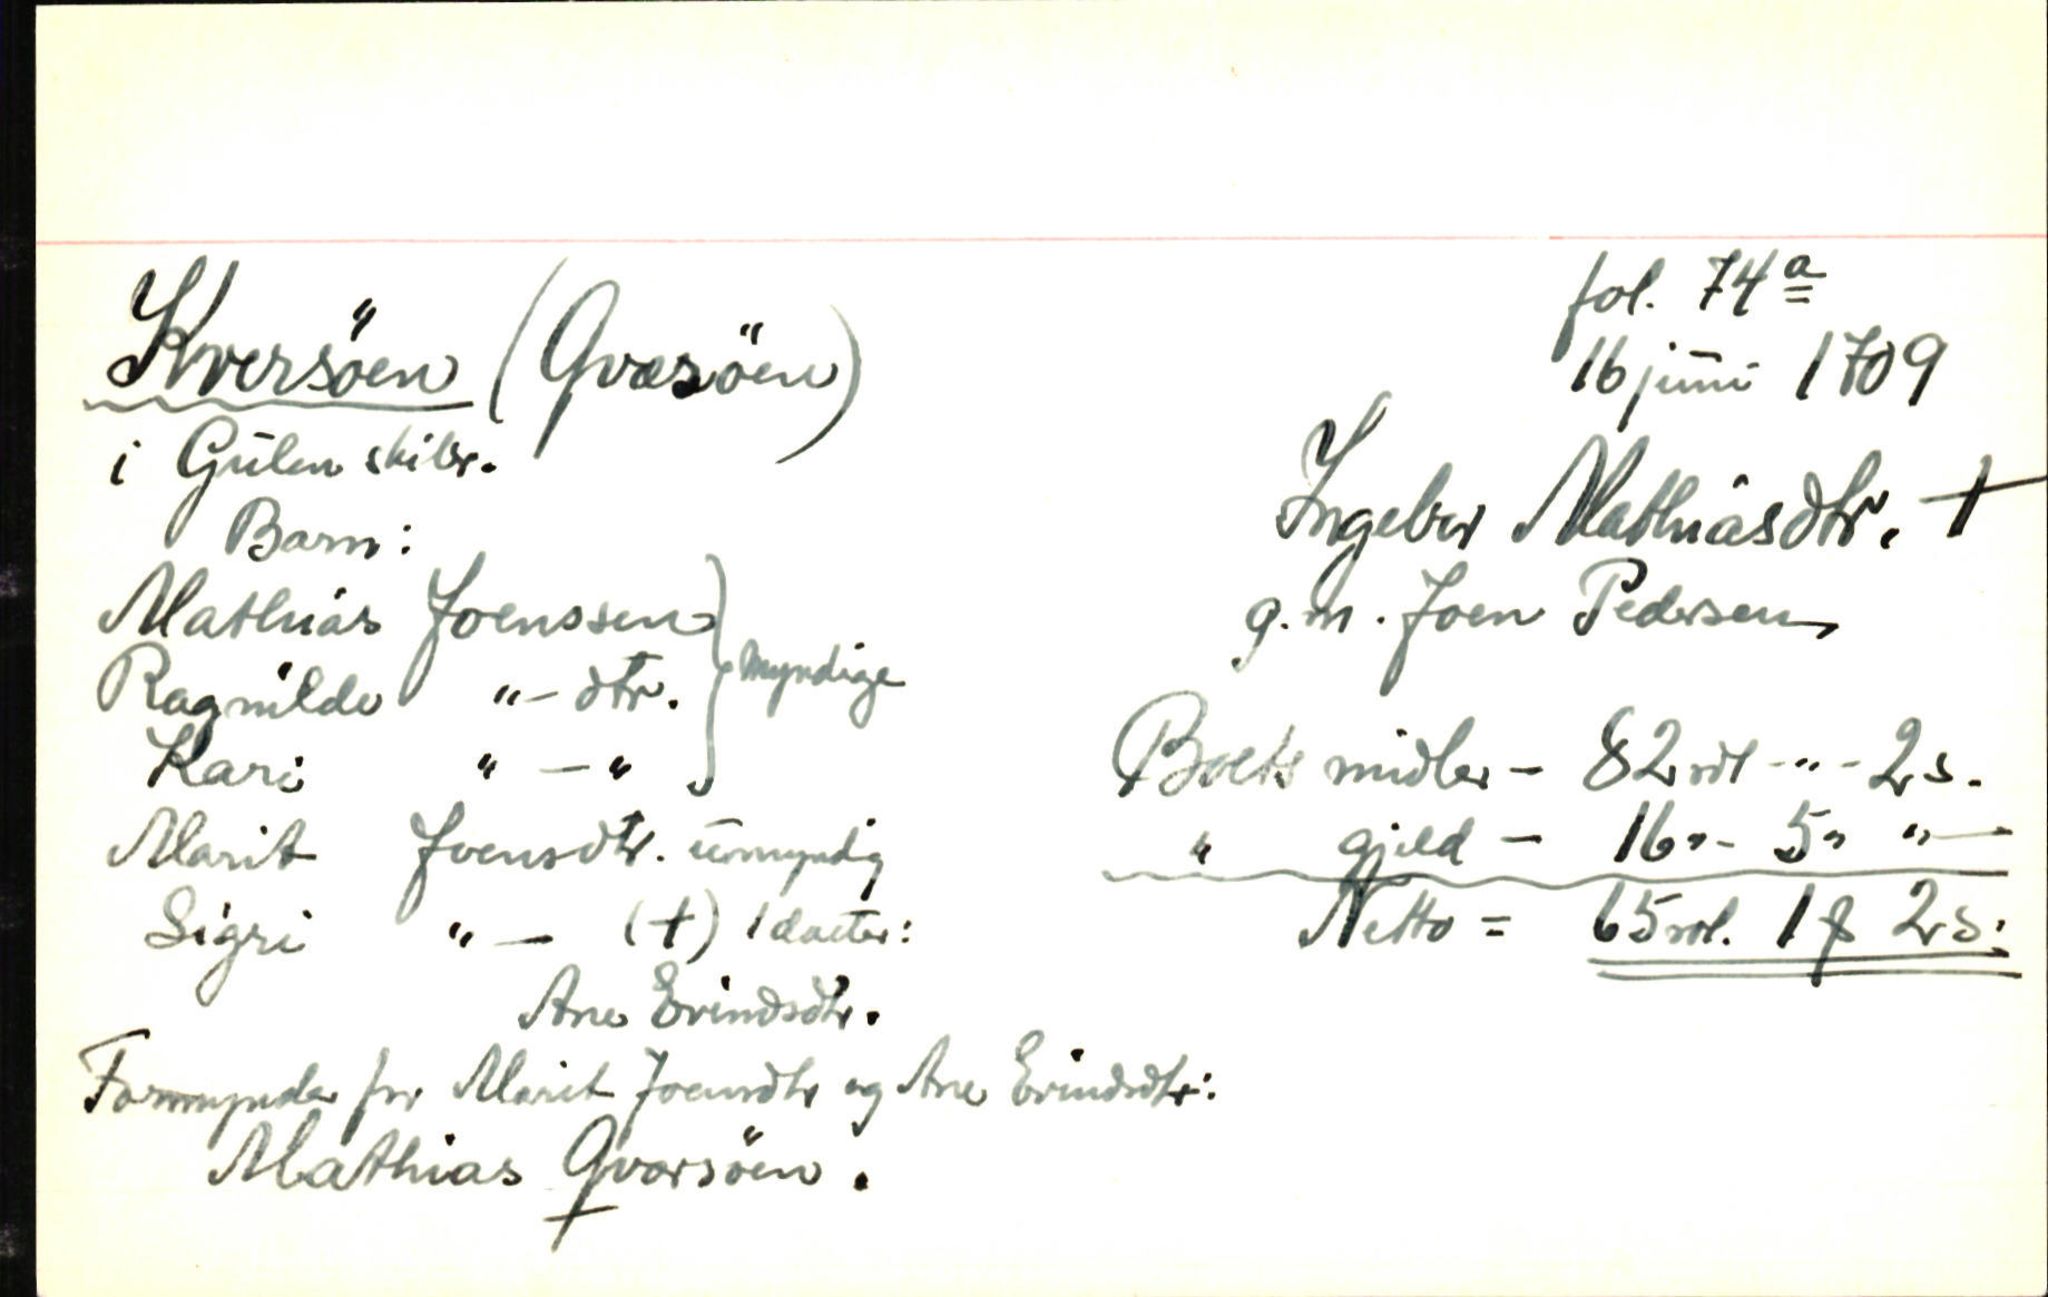 Kversöen (Qvæsöen)
i Gulen skibr.
Barn:
Mathias Joenssen
Ragnilde " - dtr.
Kari " - "
myndige
Marit Joensdtr. umyndig
Sigri " - (+) 1 datter:
Ane Evindsdtr.
Formynder for Marit Joensdtr og Ane Evindsdtr:
Mathias Qværsöen.
fol. 74a
16 juni 1709
Ingebor Mathiasdtr. +
g.m. Joen Pedersen
Boets midler - 82 rdl - " - 2 s.
" gjeld - 16 " - 5 " " -
Netto = 65 rdl. 1 ƒ 2 s.